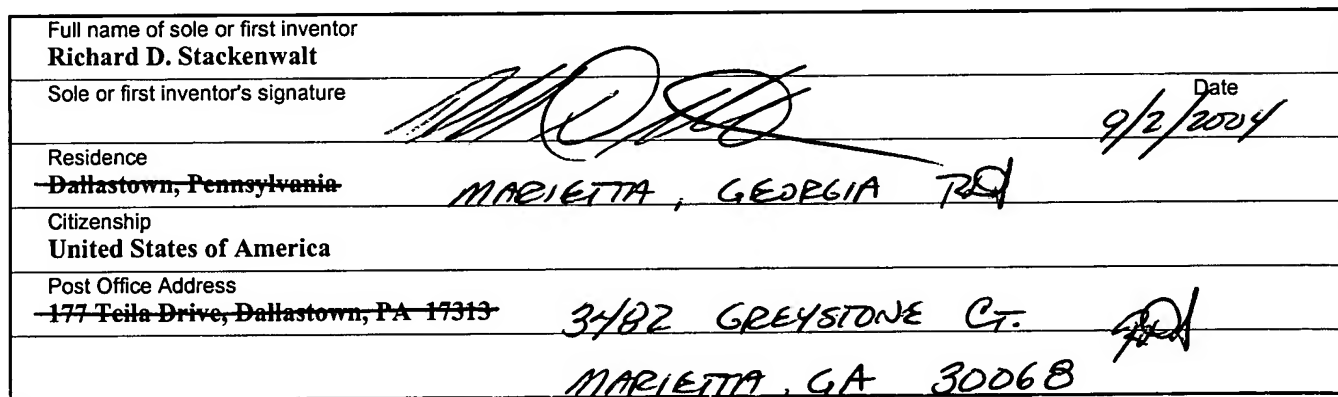 Full name of sole or first inventor
Richard D. Stackenwalt
Sole or first inventor's signature
Date
9/2/2004
Residence
Dallastown, Pennsylvania MARIETTA, GEORGIA RDS
Citizenship
United States of America
Post Office Address
177 Teila Drive, Dallastown, PA 17313 3482 GREYSTONE CT.
MARIETTA, GA 30068